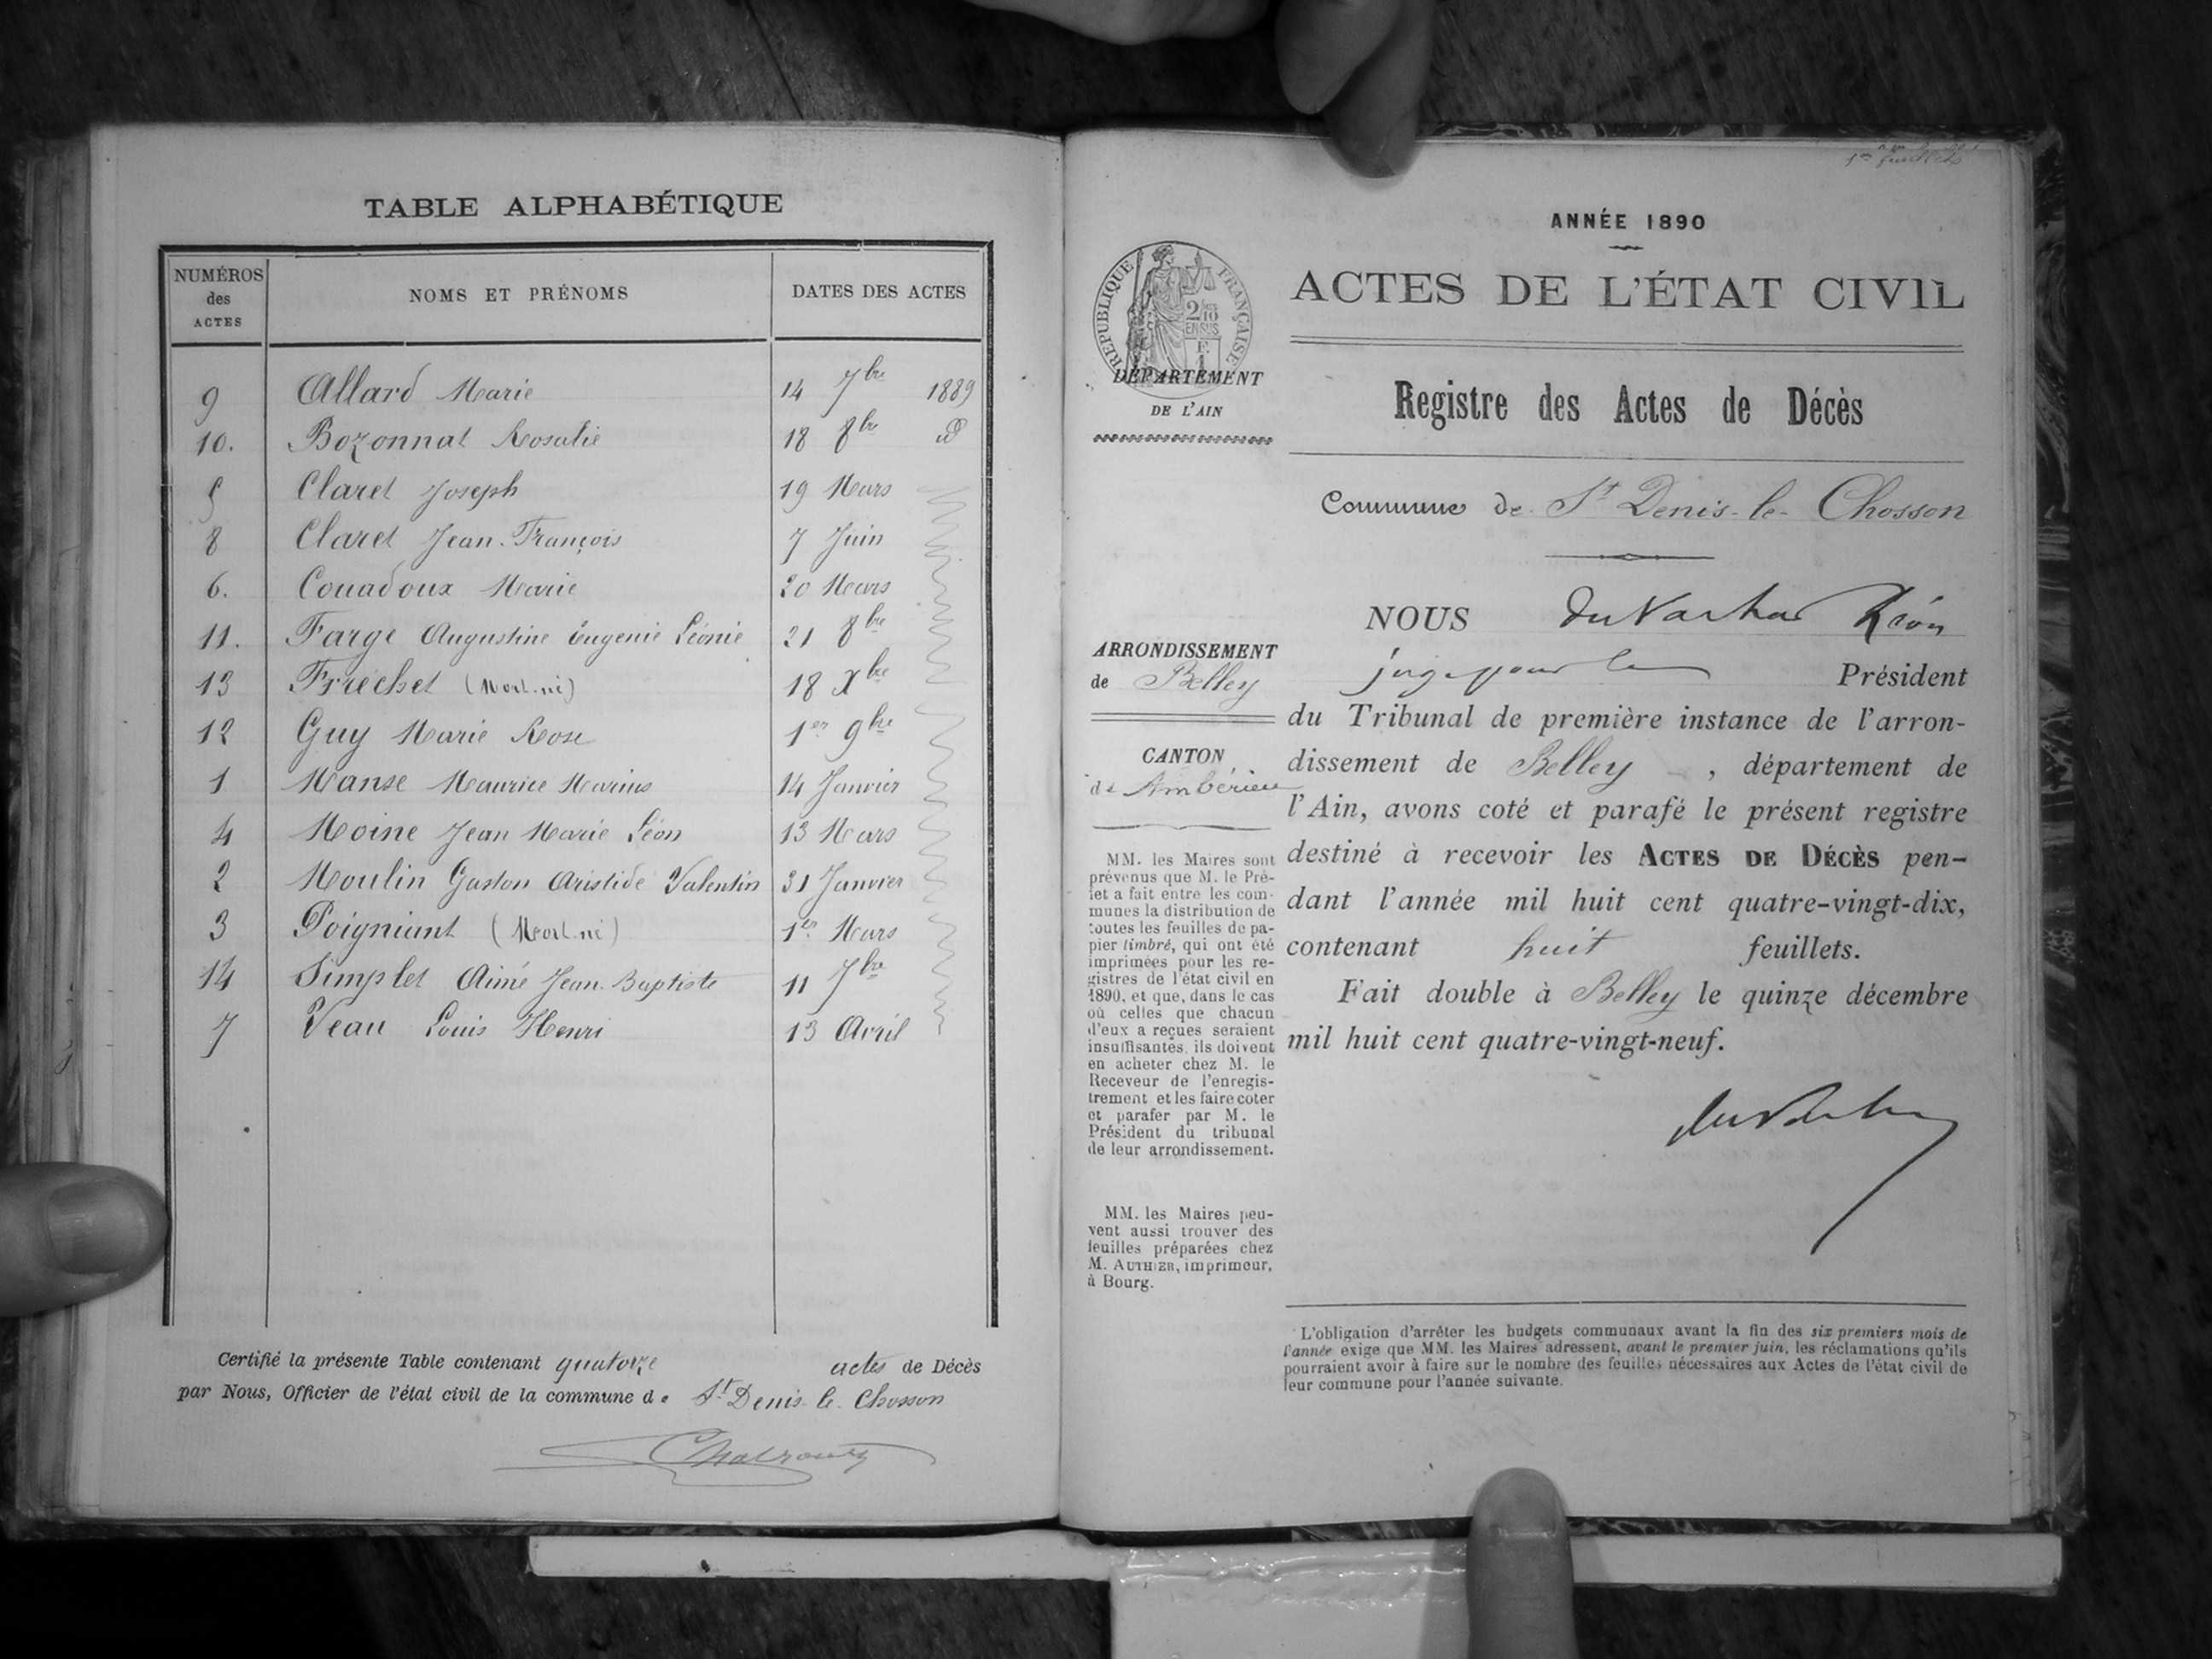 TABLE ALPHABÉTIQUE
NUMÉROS des ACTES NOMS ET PRÉNOMS DATES DES ACTES
9 Allard Marie 14 7bre 1889
10. Bozonnat Rosalie 18 8bre d°
5 Claret Joseph 19 Mars
8 Claret Jean-François 7 Juin
6. Couadoux Marie 20 Mars
11. Farge Augustine Eugenie Léonie 21 8bre
13 Fréchet (Mort-né) 18 Xbre
12 Guy Marie Rose 1er 9bre
1 Manse Maurice Marius 14 Janvier
4 Moine Jean Marie Léon 13 Mars
2 Moulin Gaston Aristide Valentin 31 Janvier
3 Poigniant (Mort-né) 1er Mars
14 Simplet Aimé Jean-Baptiste 11 7bre
7 Veau Louis Henri 13 Avril
Certifié la présente Table contenant quatorze actes de Décès
par Nous, Officier de l'état civil de la commune de St Denis-le-Chosson
ANNÉE 1890
RÉPUBLIQUE FRANÇAISE
2/10 EN SUS
ACTES DE L'ÉTAT CIVIL
DÉPARTEMENT
DE L'AIN
Registre des Actes de Décès
Commune de St Denis-le-Chosson
ARRONDISSEMENT
de Belley
CANTON
de Ambérieu
MM. les Maires sont
prévenus que M. le Pré-
fet a fait entre les com-
munes la distribution de
toutes les feuilles de pa-
pier timbré, qui ont été
imprimées pour les re-
gistres de l'état civil en
1890, et que, dans le cas
où celles que chacun
d'eux a reçues seraient
insuffisantes, ils doivent
en acheter chez M. le
Receveur de l'enregis-
trement et les faire coter
et parafer par M. le
Président du tribunal
de leur arrondissement.
MM. les Maires peu-
vent aussi trouver des
feuilles préparées chez
M. AUTHIER, imprimeur,
à Bourg.
NOUS Léon
juge pour le Président
du Tribunal de première instance de l'arron-
dissement de Belley, département de
l'Ain, avons coté et parafé le présent registre
destiné à recevoir les ACTES DE DÉCÈS pen-
dant l'année mil huit cent quatre-vingt-dix,
contenant huit feuillets.
Fait double à Belley le quinze décembre
mil huit cent quatre-vingt-neuf.
L'obligation d'arrêter les budgets communaux avant la fin des six premiers mois de
l'année exige que MM. les Maires adressent, avant le premier juin, les réclamations qu'ils
pourraient avoir à faire sur le nombre des feuilles nécessaires aux Actes de l'état civil de
leur commune pour l'année suivante.